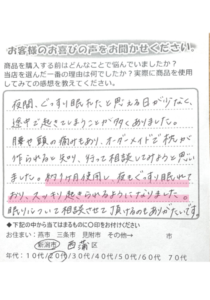 お客様のお喜びの声をお聞かせください
商品を購入する前はどんなことで悩んでいましたか？
当店を選んだ一番の理由は何でしたか？実際に商品を使用
してみての感想を教えてください。
夜間、ぐっすり眠れたと思える日が少なく、
途中で起きてしまうことが多くありました。
腰や頭の痛みもあり、オーダーメイドで枕が
作られると知り、行って相談してみようと思い
ました。約1ヶ月使用し、夜もぐっすり眠れて
おり、スッキリ起きられるようになりました。
眠りについて相談させて頂けるのもありがたいです。
▼下記の中から当てはまるものに○印をお付けください
お住まい：燕市 三条市 見附市 その他→ 市
新潟市 西蒲 区
年代：10代/20代/30代/40代/50代/60代 70代